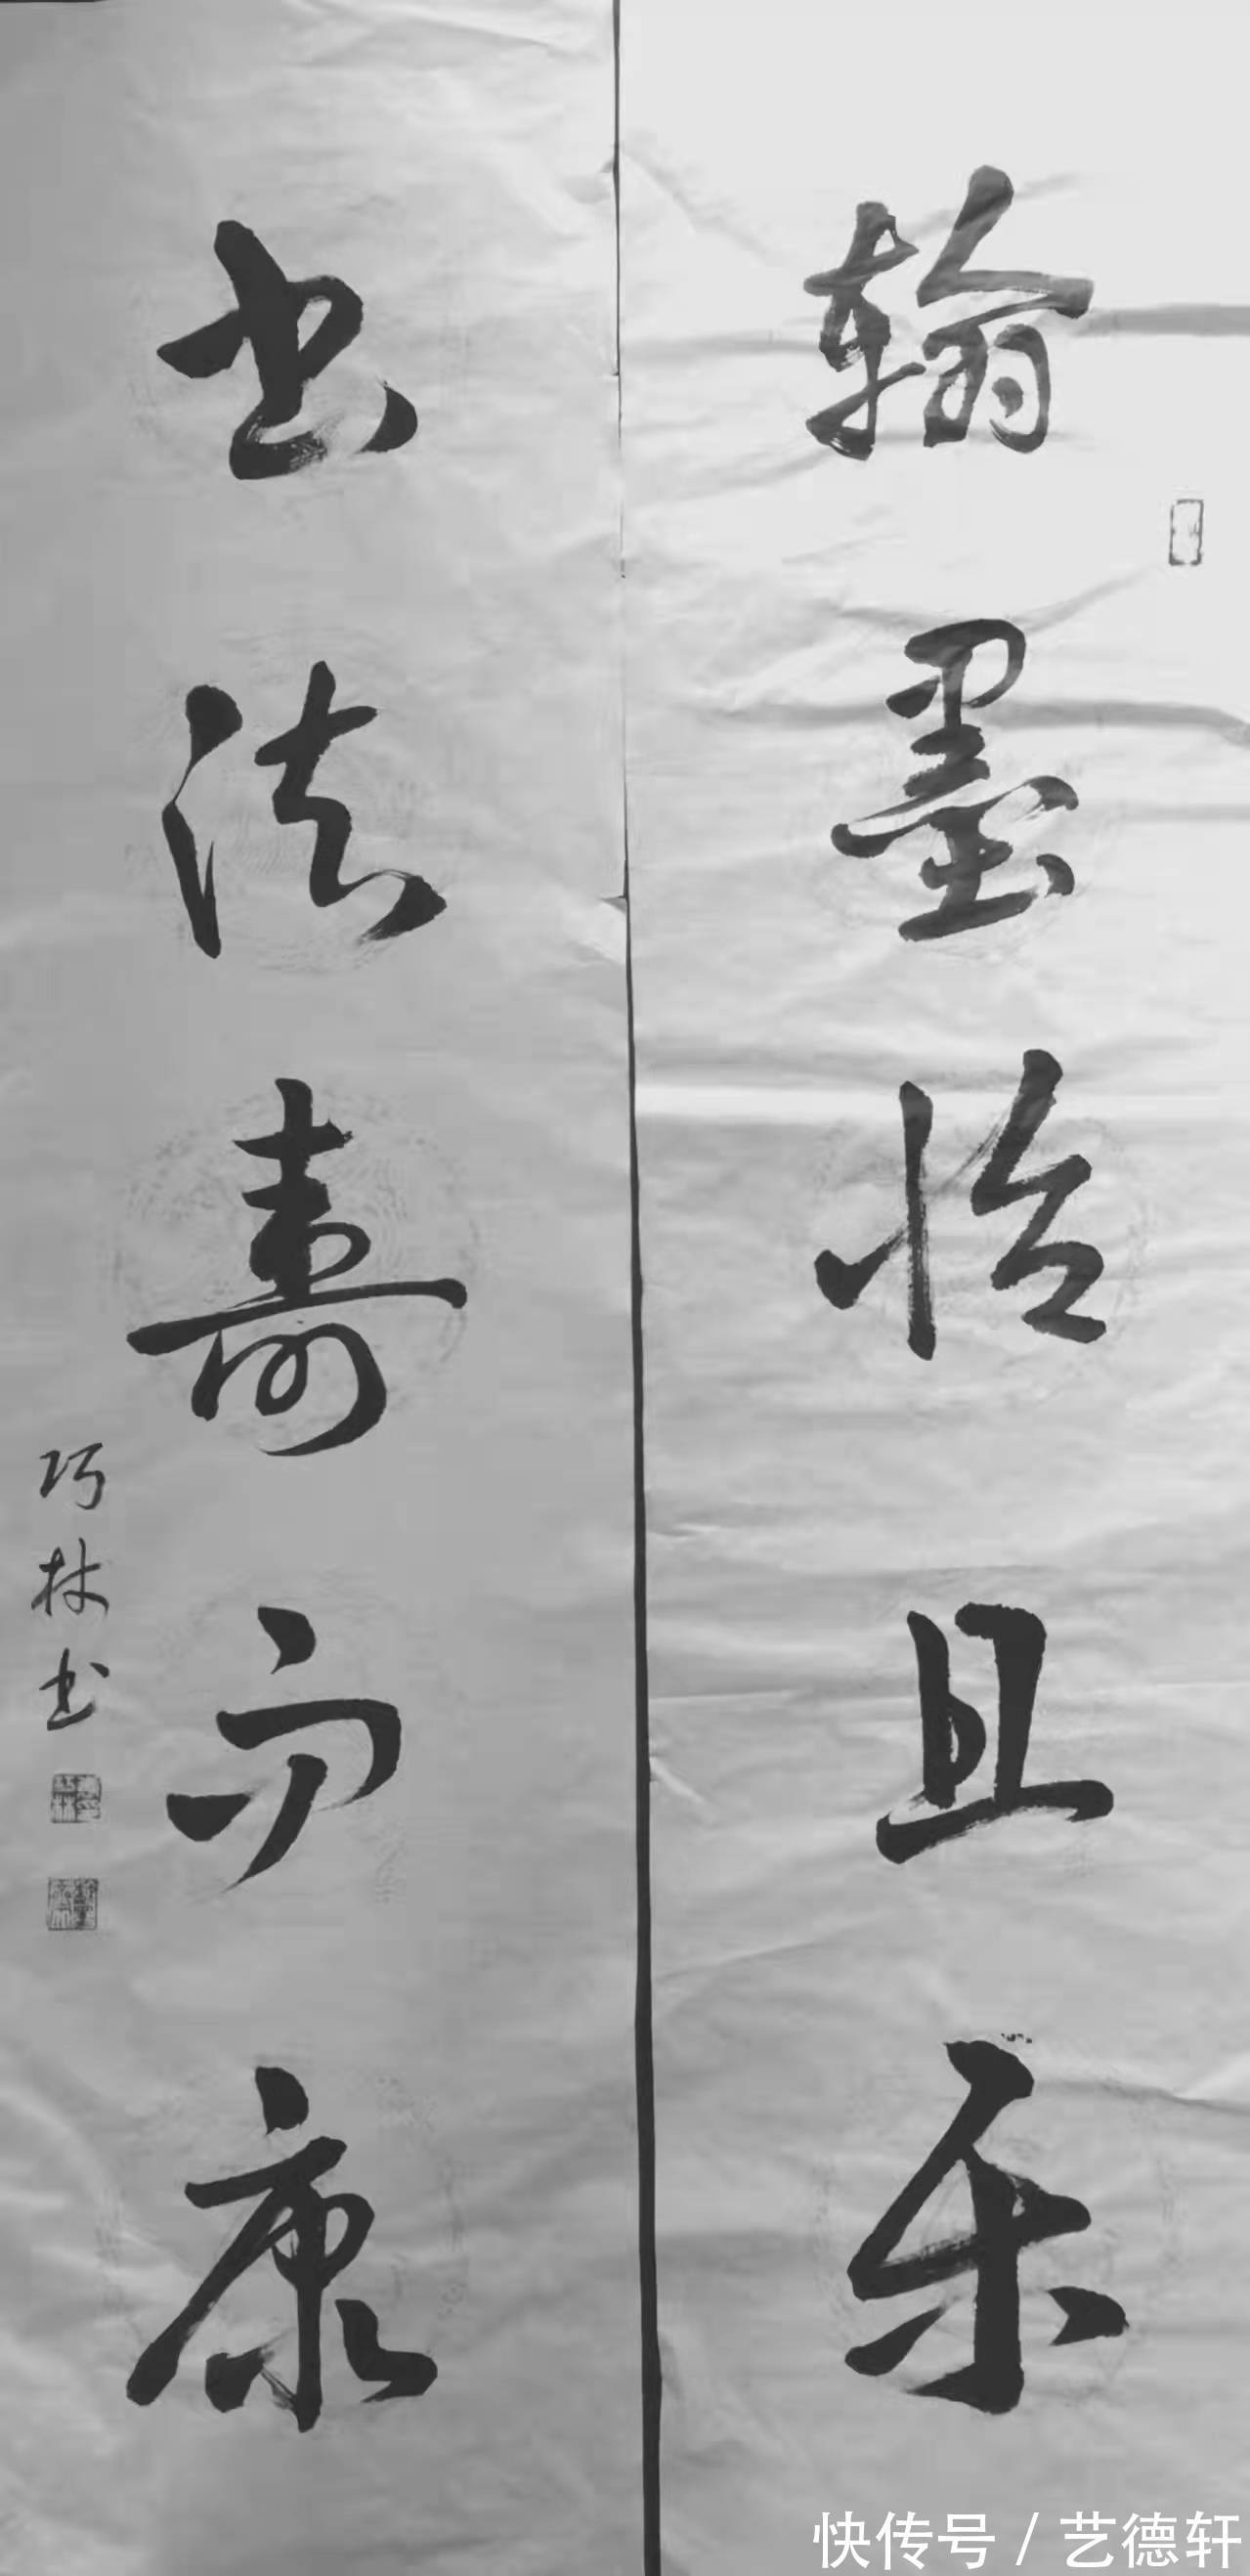 翰墨怡且乐
书法寿而康
巧林书
快传号/艺德轩